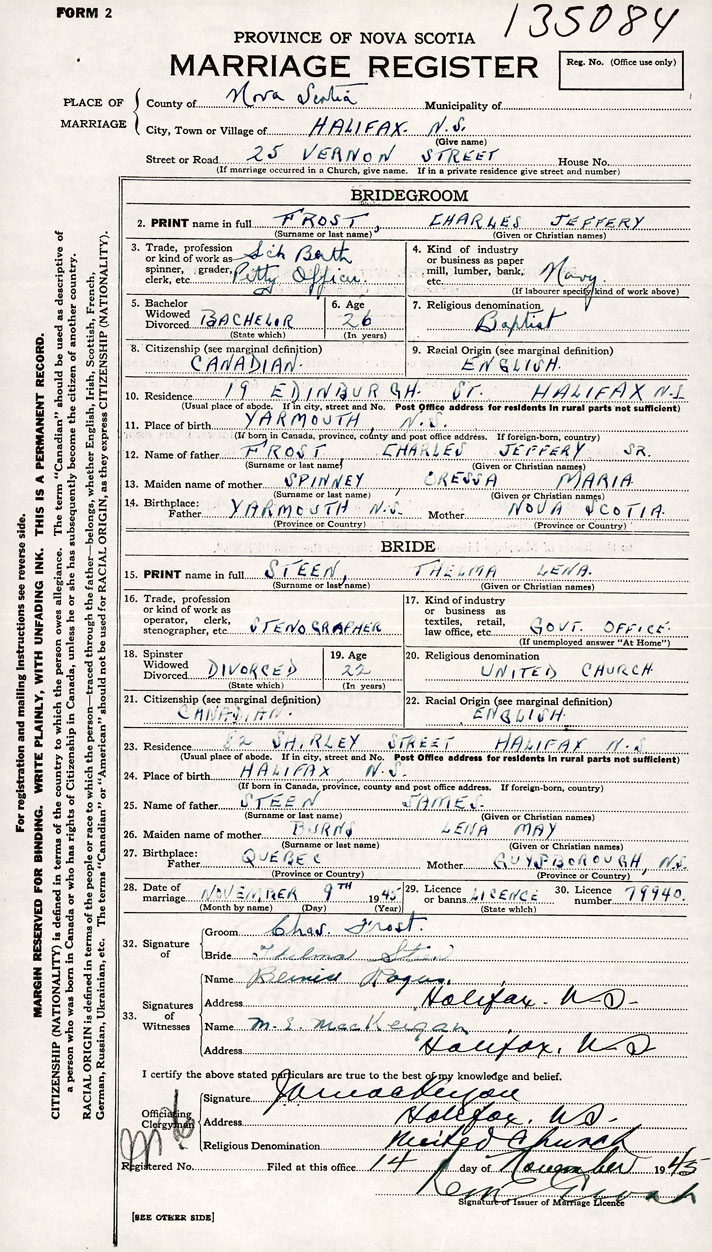 FORM 2
135084
PROVINCE OF NOVA SCOTIA
MARRIAGE REGISTER
Reg. No. (Office use only)
PLACE OF MARRIAGE
County of Nova Scotia Municipality of
City, Town or Village of HALIFAX N.S.
(Give name)
Street or Road 25 VERNON STREET House No.
(If marriage occurred in a Church, give name. If in a private residence give street and number)
BRIDEGROOM
2. PRINT name in full FROST, CHARLES JEFFERY
(Surname or last name) (Given or Christian names)
3. Trade, profession or kind of work as spinner, grader, clerk, etc. Petty Officer
4. Kind of industry or business as paper mill, lumber, bank, etc. Navy
(If labourer specify kind of work above)
5. Bachelor Widowed Divorced BACHELOR
(State which)
6. Age 26
(In years)
7. Religious denomination
Baptist
8. Citizenship (see marginal definition)
CANADIAN.
9. Racial Origin (see marginal definition)
ENGLISH.
10. Residence 19 EDINBURGH ST. HALIFAX N.S
(Usual place of abode. If in city, street and No. Post Office address for residents in rural parts not sufficient)
11. Place of birth YARMOUTH, N.S.
(If born in Canada, province, county and post office address. If foreign-born, country)
12. Name of father FROST, CHARLES JEFFERY SR.
(Surname or last name) (Given or Christian names)
13. Maiden name of mother SPINNEY, CRESSA MARIA
(Surname or last name) (Given or Christian names)
14. Birthplace: Father YARMOUTH N.S. Mother NOVA SCOTIA
(Province or Country) (Province or Country)
BRIDE
15. PRINT name in full STEEN, THELMA LENA.
(Surname or last name) (Given or Christian names)
16. Trade, profession or kind of work as operator, clerk, stenographer, etc. STENOGRAPHER
17. Kind of industry or business as textiles, retail, law office, etc. GOVT. OFFICE
(If unemployed answer "At Home")
18. Spinster Widowed Divorced DIVORCED
(State which)
19. Age 22
(In years)
20. Religious denomination
UNITED CHURCH
21. Citizenship (see marginal definition)
CANADIAN.
22. Racial Origin (see marginal definition)
ENGLISH.
23. Residence 82 SHIRLEY STREET HALIFAX N.S
(Usual place of abode. If in city, street and No. Post Office address for residents in rural parts not sufficient)
24. Place of birth HALIFAX N.S.
(If born in Canada, province, county and post office address. If foreign-born, country)
25. Name of father STEEN JAMES.
(Surname or last name) (Given or Christian names)
26. Maiden name of mother BURNS LENA MAY
(Surname or last name) (Given or Christian names)
27. Birthplace: Father QUEBEC Mother GUYSBOROUGH, N.S.
(Province or Country) (Province or Country)
28. Date of marriage NOVEMBER 9TH 1945
(Month by name) (Day) (Year)
29. Licence or banns LICENCE
(State which)
30. Licence number 79940.
32. Signature of
Groom Chas. Frost.
Bride Thelma Steen
33. Signatures of Witnesses
Name
Address Halifax. N.S.
Name M. E. MacKeigan
Address Halifax, N.S
I certify the above stated particulars are true to the best of my knowledge and belief.
Officiating Clergyman
Signature
Address Halifax, N.S.
Religious Denomination United Church
Registered No. Filed at this office 14 day of November 1945
Signature of Issuer of Marriage Licence
[SEE OTHER SIDE]
For registration and mailing instructions see reverse side.
MARGIN RESERVED FOR BINDING. WRITE PLAINLY, WITH UNFADING INK. THIS IS A PERMANENT RECORD.
CITIZENSHIP (NATIONALITY) is defined in terms of the country to which the person owes allegiance. The term "Canadian" should be used as descriptive of
a person who was born in Canada or who has rights of Citizenship in Canada, unless he or she has subsequently become the citizen of another country.
RACIAL ORIGIN is defined in terms of the people or race to which the person—traced through the father—belongs, whether English, Irish, Scottish, French,
German, Russian, Ukrainian, etc. The terms "Canadian" or "American" should not be used for RACIAL ORIGIN, as they express CITIZENSHIP (NATIONALITY).